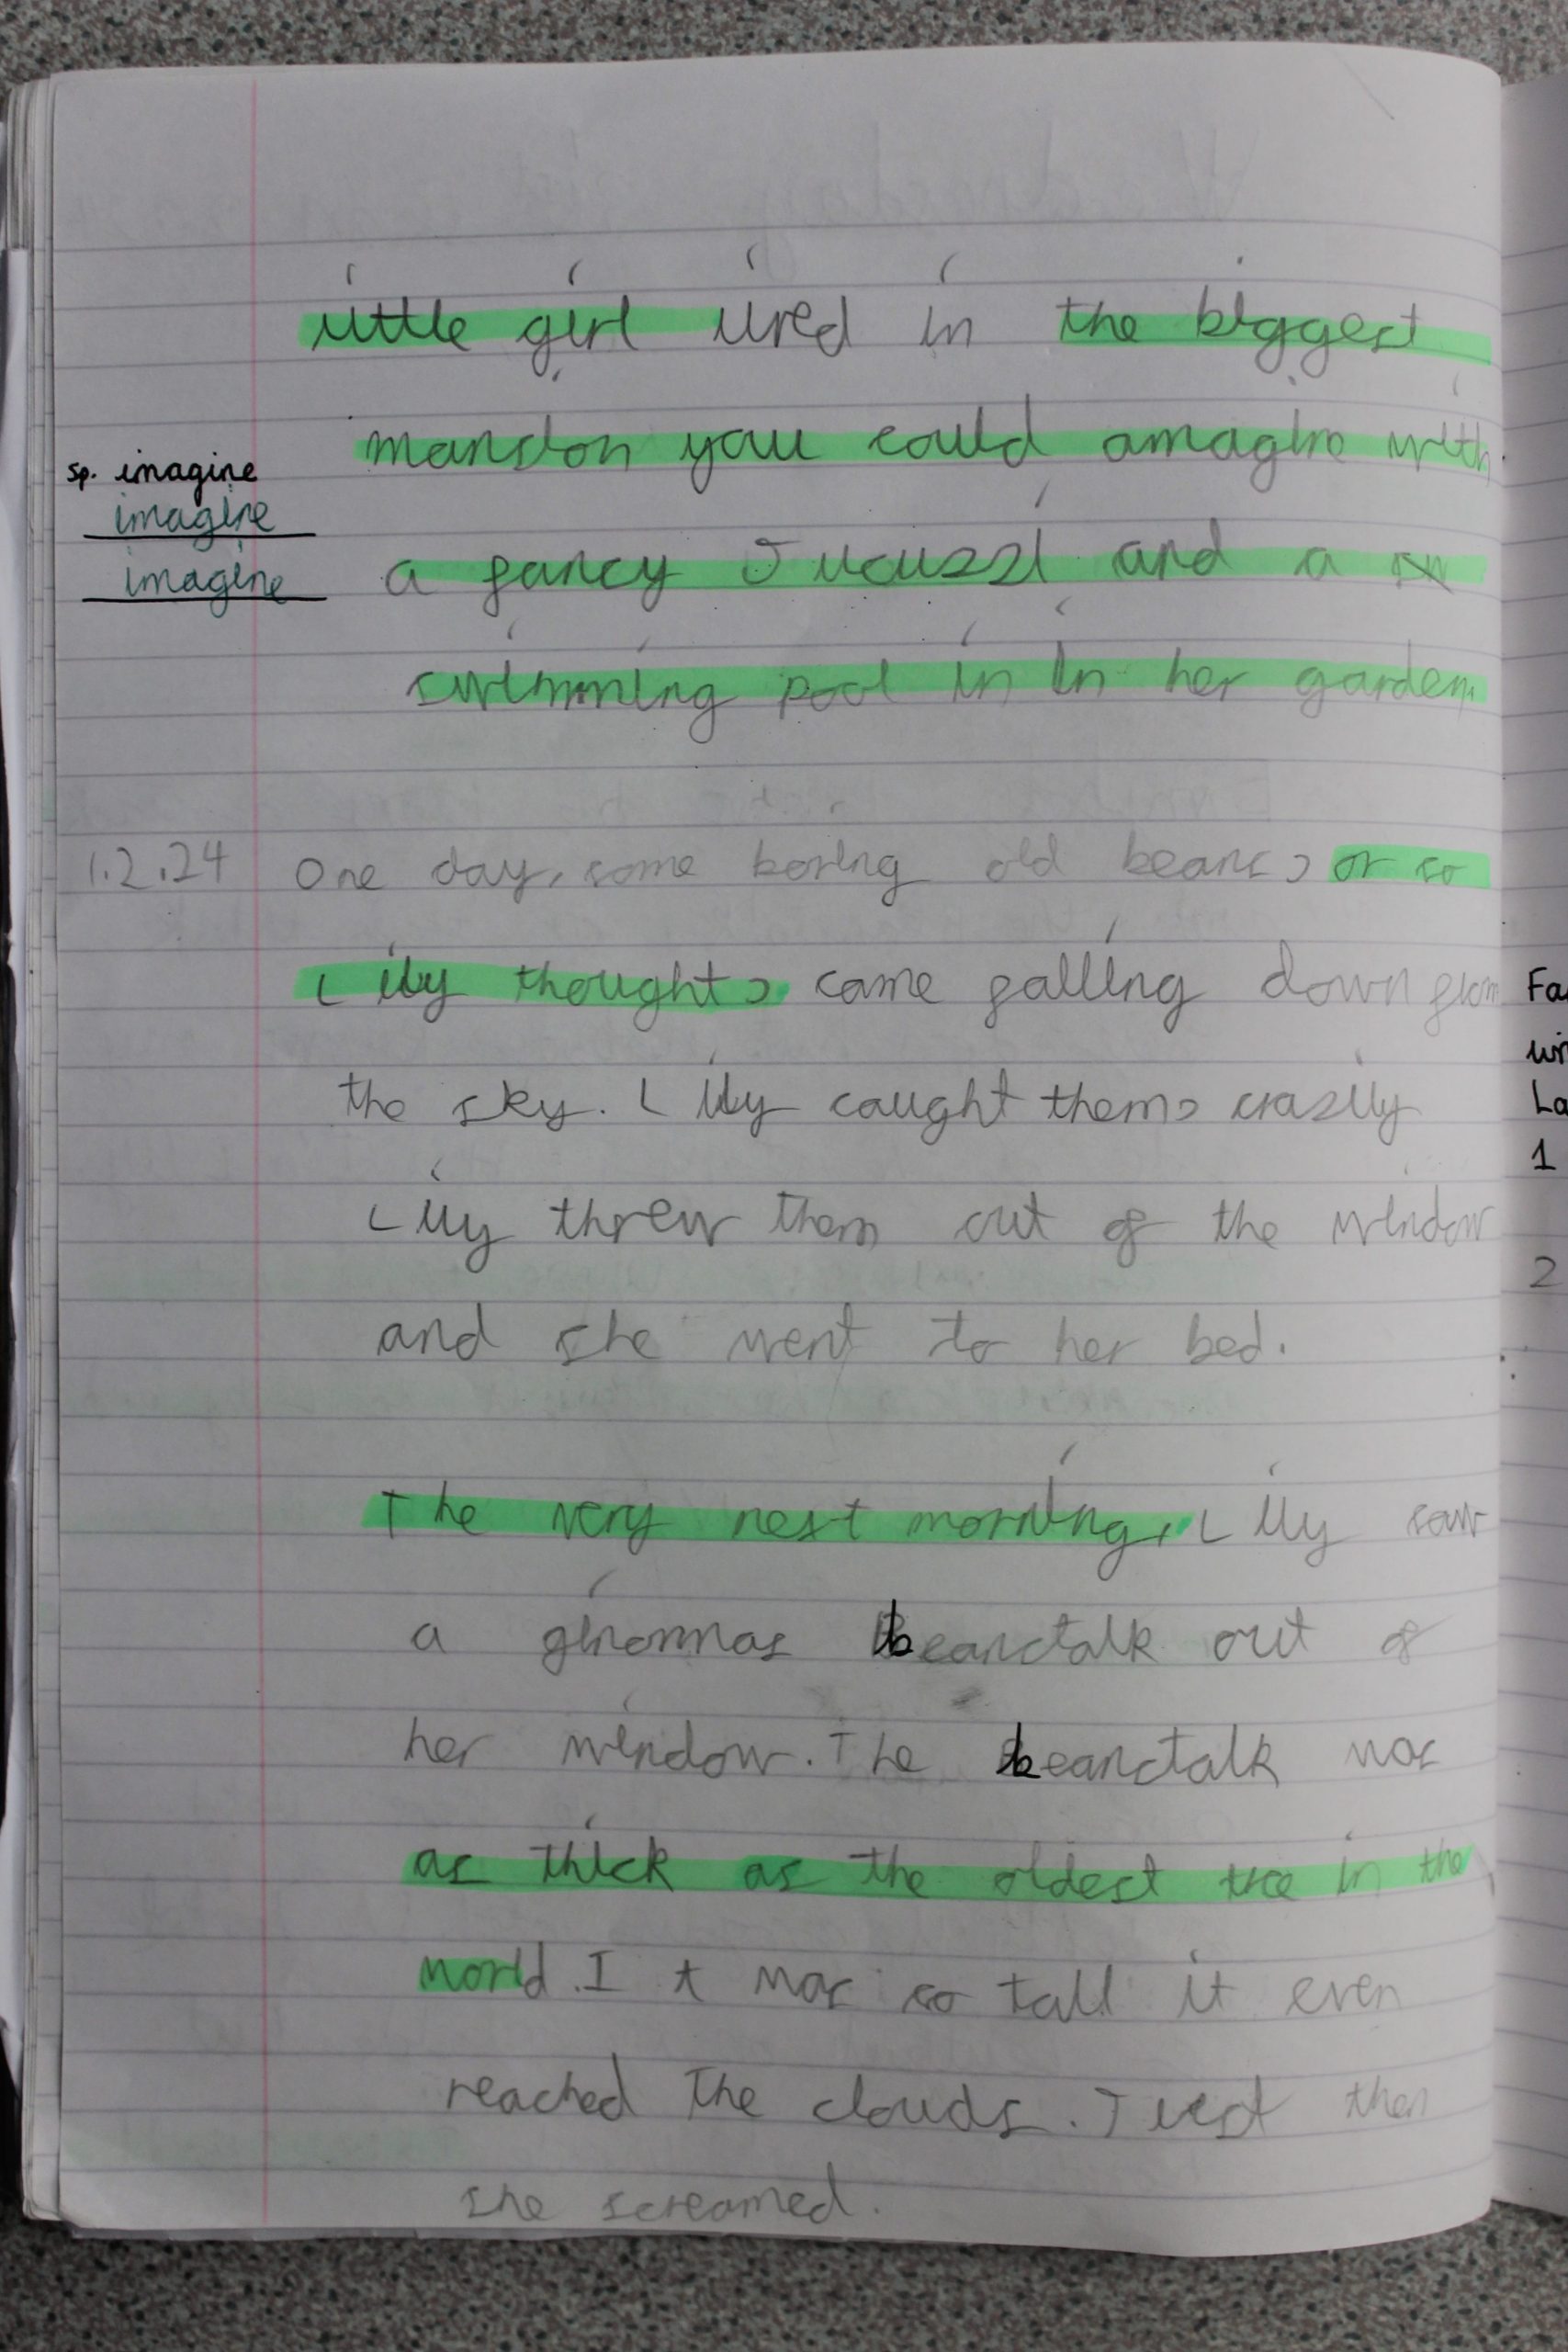 little girl lived in the biggest
mansion you could amagine with
sp. imagine
imagine
imagine
a fancy Jucuzzi and a
swimming pool in in her garden.
1.2.24 One day, some boring old beans, or so
Lily thought, came falling down from
the sky. Lily caught them, crazily
Lily threw them out of the window
and she went to her bed.
The very next morning, Lily saw
a beanstalk out of
her window. The beanstalk was
as thick as the oldest tree in the
world. It was so tall it even
reached the clouds. Just then
she screamed.
Fa
wr
La
1
2